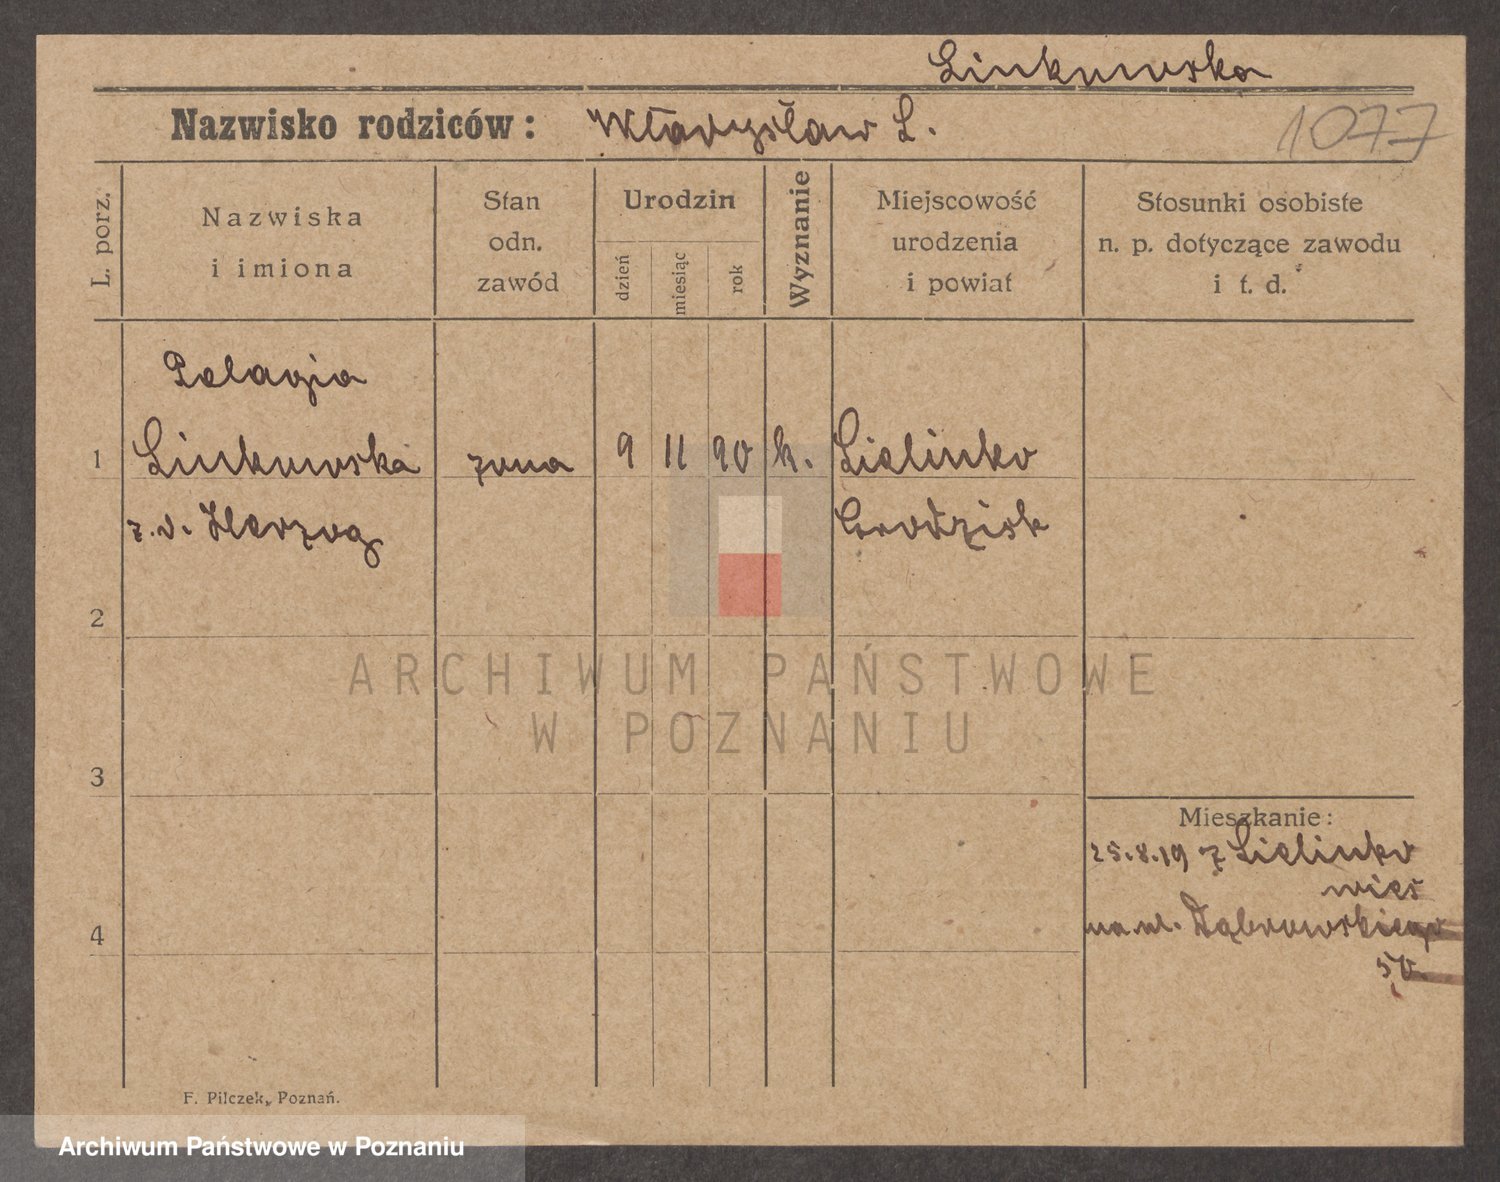 Linkowska
Nazwisko rodziców: Władysław L.
1077
L. porz.
Nazwiska
i imiona
Stan
odn.
zawód
Urodzin
dzień
miesiąc
rok
Wyznanie
Miejscowość
urodzenia
i powiat
Stosunki osobiste
n. p. dotyczące zawodu
i t. d.
Pelagia
1 Linkowska żona 9 11 90 k. Lielinko
z.d. Herzog Grodzisk
2
ARCHIWUM PAŃSTWOWE
W POZNANIU
3
Mieszkanie:
25.8.19 z Lielinko
wieś
4 na ul. Dąbrowskiego
50.
F. Pilczek, Poznań.
Archiwum Państwowe w Poznaniu